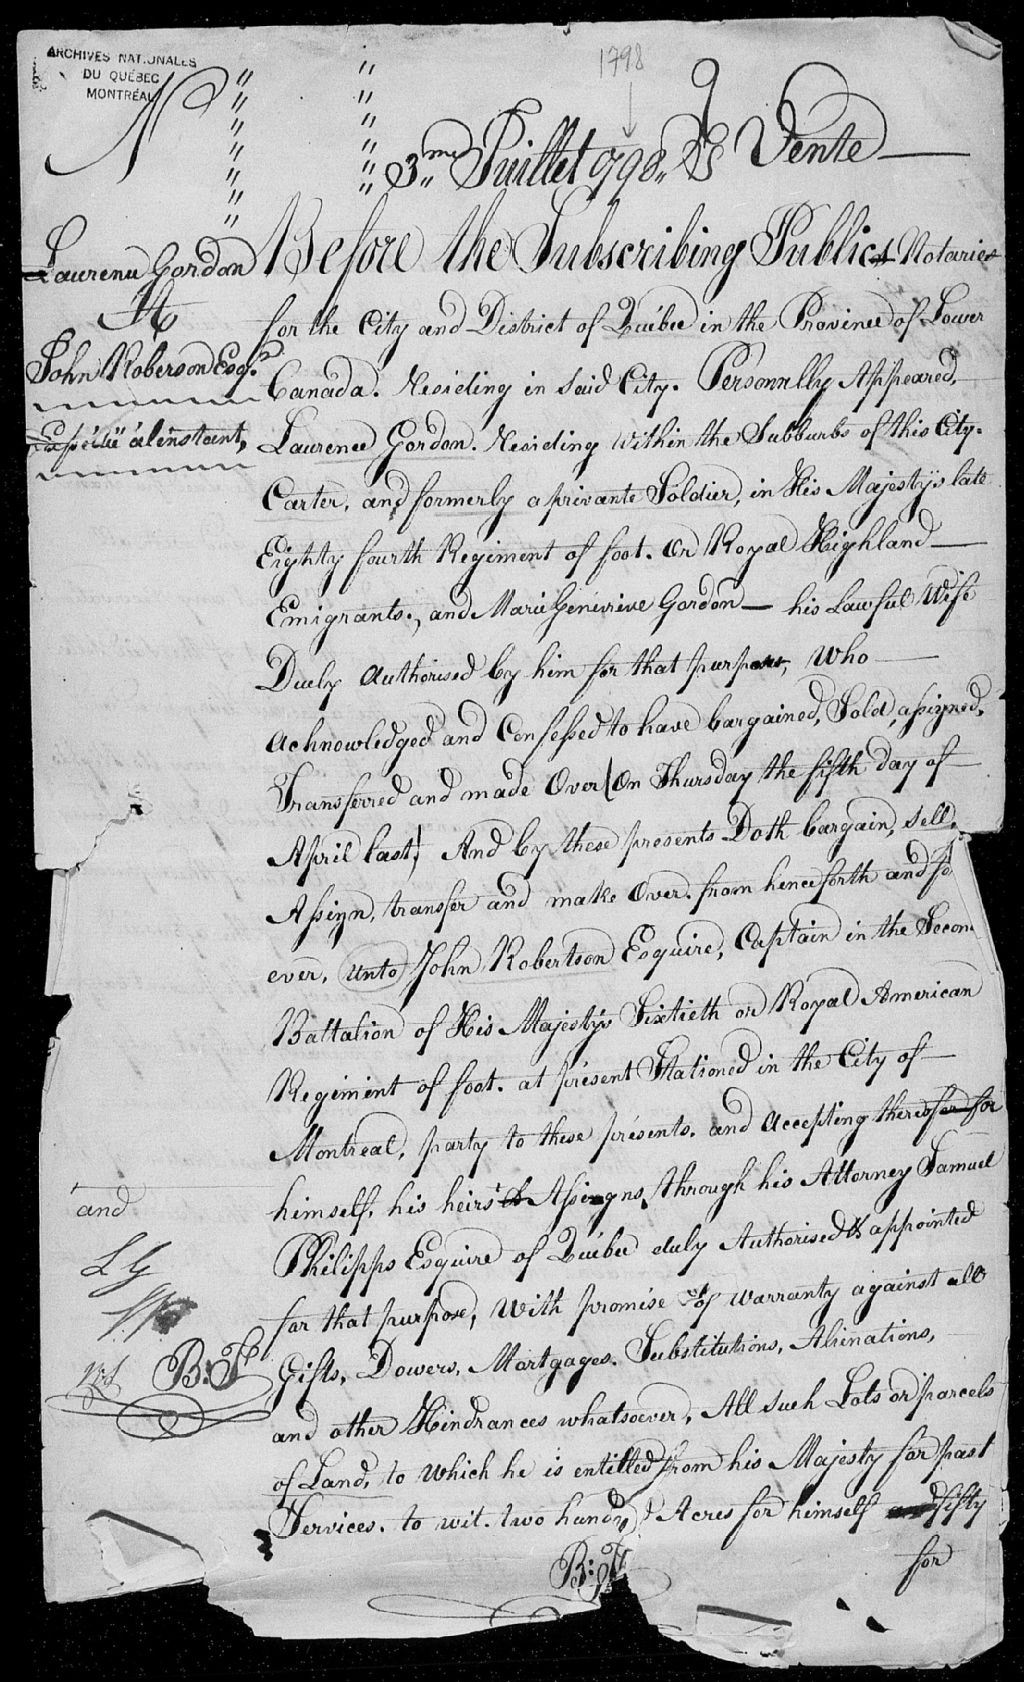 ARCHIVES NATIONALES
DU QUÉBEC
MONTRÉAL
1798
3me Juillet 1798 Vente
Laurence Gordon
At
John Roberson Esqr.
Expédié à l'instant,
Before the Subscribing Publics Notaries
for the City and District of Québec in the Province of Lower
Canada. Residing in said City. Personnlly Appeared,
Laurence Gordon. Residing within the Subburbs of this City.
Carter, and formerly a privante Soldier, in His Majesty's late
Eighty fourth Regiment of foot. or Royal Highland
Emigrants., and Marie Genevive Gordon his Lawful Wife
Duely authorised by him for that purpose, Who
acknowledged and Confessed to have bargained, Sold, assigned,
Transferred and made Over (On Thursday the fifth day of
April last) And by these presents Doth bargain, sell,
Assign, transfer and make Over. from henceforth and fo
ever, unto John Robertson Esquire, Captain in the Secon
Battalion of His Majesty's Sixtieth or Royal American
Regiment of foot. at present Stationed in the City of
Montreal, party to these présents. and accepting thereof for
himself, his heirs & Assigns, through his Attorney Samuel
Philipps Esquire of Québec duly Authorised & appointed
for that purpose, With promise of warranty against all
Gifts, Dowers, Mortgages. Substitutions, Alienations,
and other Hindrances whatsoever, All such Lots or parcels
of Land, to which he is entitled from his Majesty for past
Services. to wit. two hund Acres for himself and fifty
for
and
L G
B:F
B:F